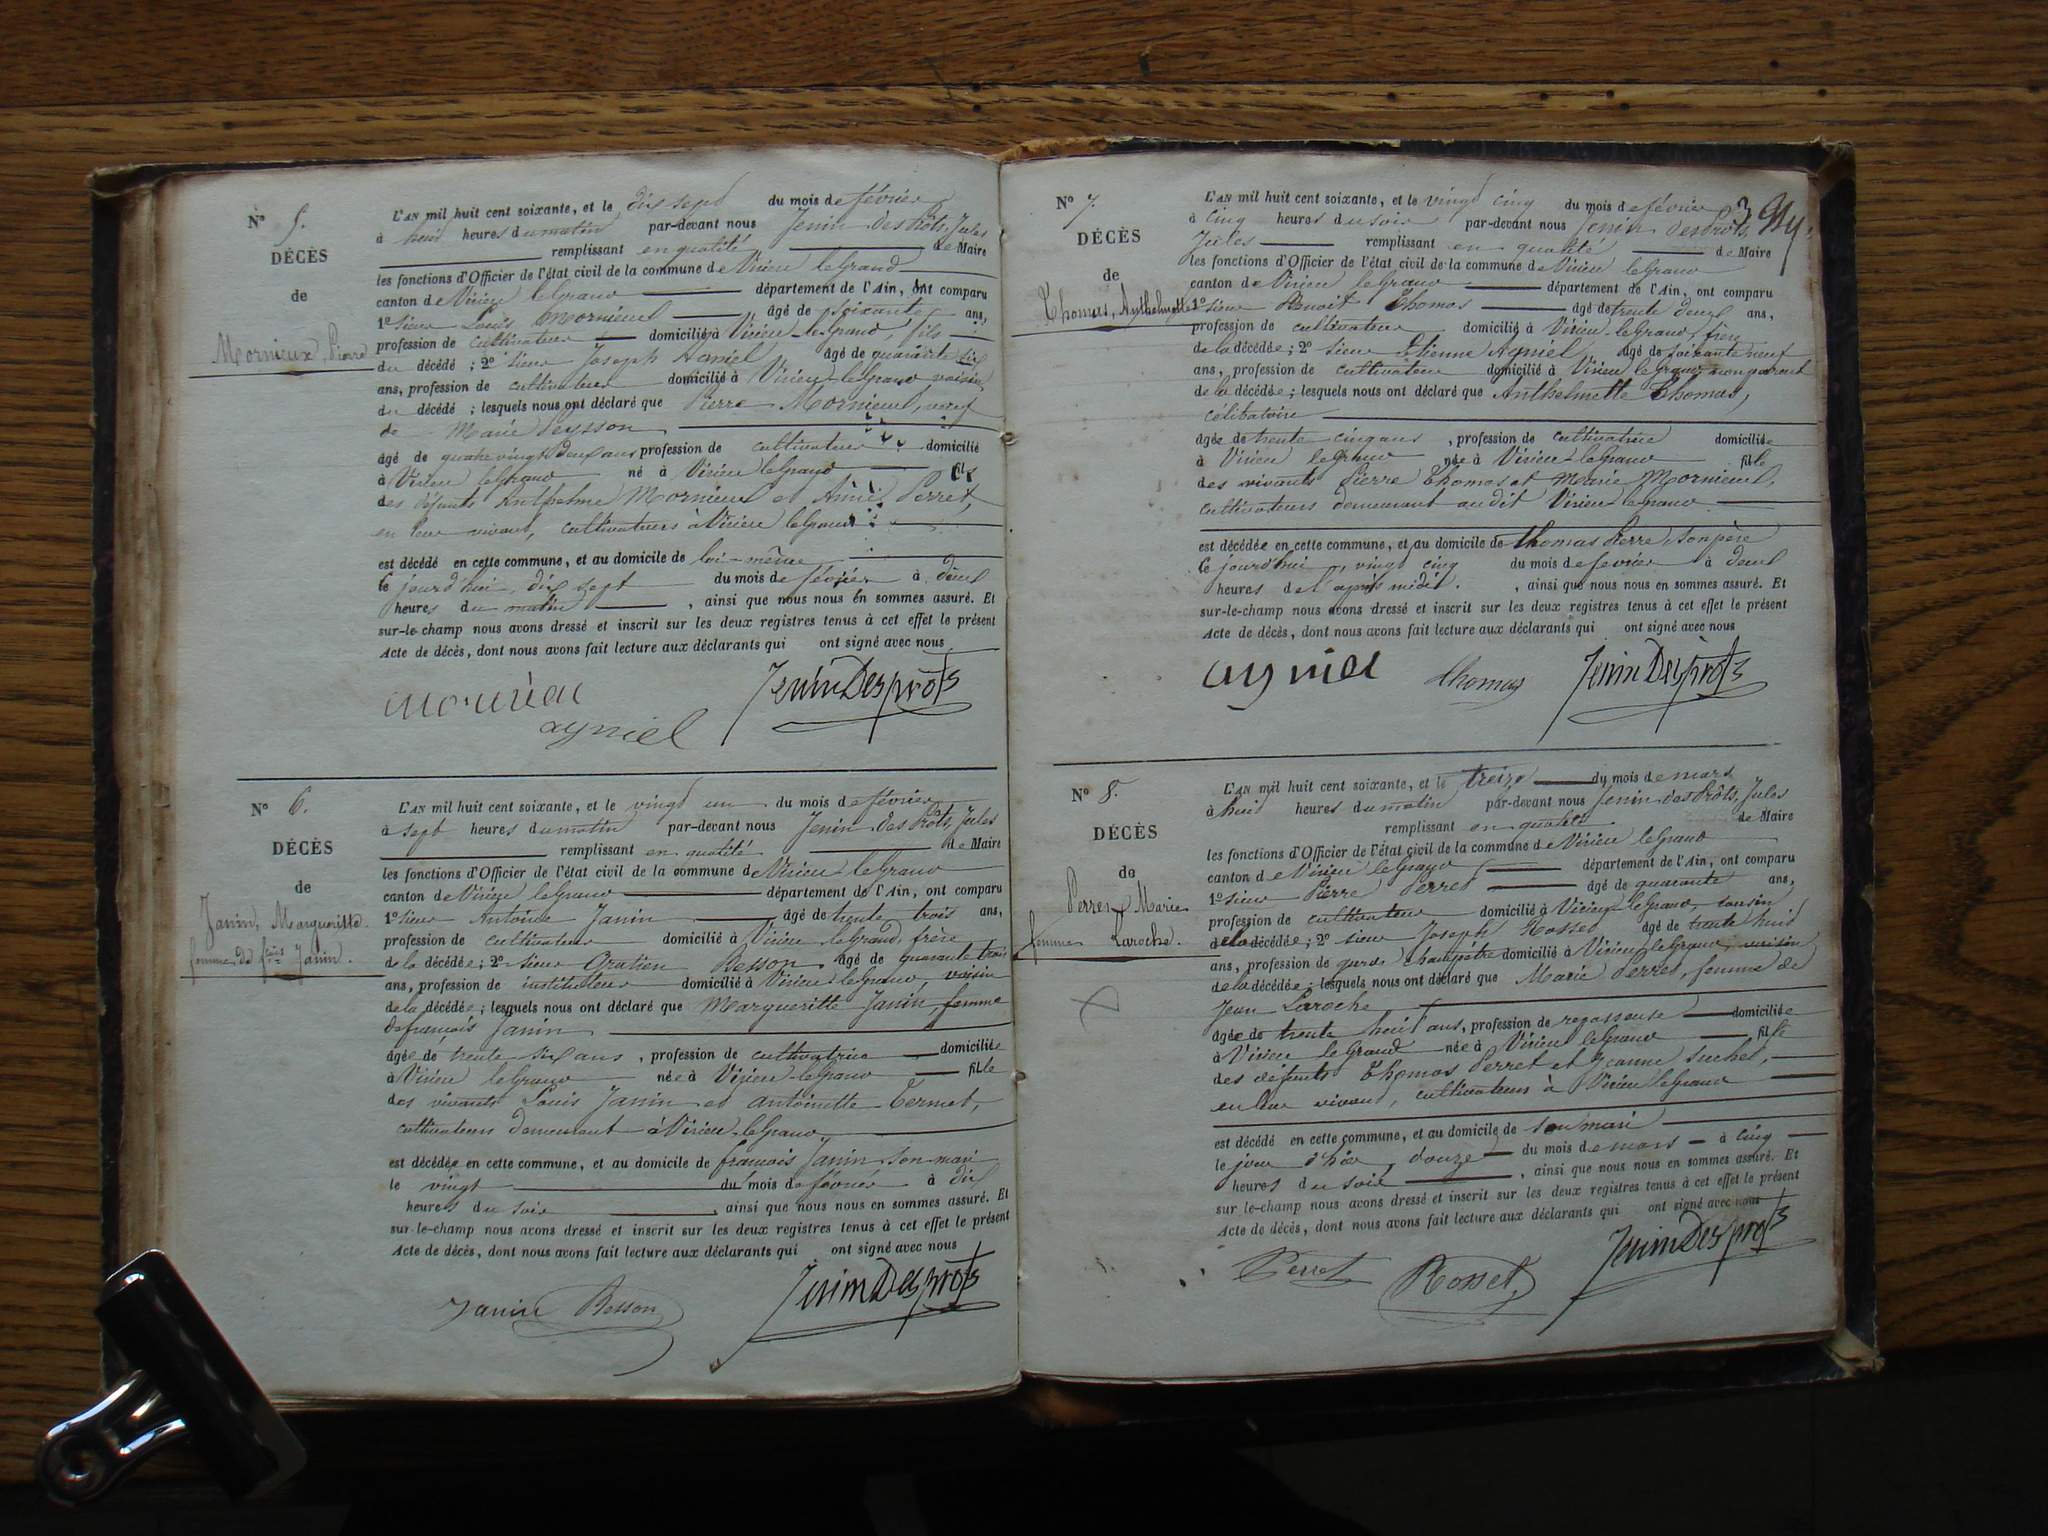 N° 5.
DÉCÈS
de
Mornieux, Pierre
L'AN mil huit cent soixante, et le dix sept du mois de février
à huit heures du matin par-devant nous Jenin des Prôts, Jules
remplissant en qualité de Maire
les fonctions d'Officier de l'état civil de la commune de Virieu le Grand
canton de Virieu le Grand département de l'Ain, ont comparu
1° sieur Louis Mornieux âgé de soixante ans,
profession de cultivateur domicilié à Virieu-le-Grand, fils
du décédé ; 2° sieur Joseph Ayniel âgé de quarante six
ans, profession de cultivateur domicilié à Virieu-le-Grand voisin
du décédé ; lesquels nous ont déclaré que Pierre Mornieux, veuf
de Marie Peysson
âgé de quatre vingt deux ans profession de cultivateur domicilié
à Virieu le Grand né à Virieu le Grand fils
des défunts Anthelme Mornieux et Perret,
en leur vivant, cultivateurs à Virieu le Grand
est décédé en cette commune, et au domicile de lui-même
le jourd'hui, dix sept du mois de février à deux
heures du matin, ainsi que nous nous en sommes assuré. Et
sur-le-champ nous avons dressé et inscrit sur les deux registres tenus à cet effet le présent
Acte de décès, dont nous avons fait lecture aux déclarants qui ont signé avec nous
ayniel Jenin Des prots
N° 6.
DÉCÈS
de
Janin, Margueritte
femme de fçois Janin.
L'AN mil huit cent soixante, et le vingt un du mois de février
à sept heures du matin par-devant nous Jenin des Prôts, Jules
remplissant en qualité de Maire
les fonctions d'Officier de l'état civil de la commune de Virieu-le-Grand
canton de Virieu le Grand département de l'Ain, ont comparu
1° sieur Antoine Janin âgé de trente trois ans,
profession de cultivateur domicilié à Virieu le Grand, frère
de la décédée ; 2° sieur Gratien Besson âgé de quarante trois
ans, profession de instituteur domicilié à Virieu-le-Grand, voisin
de la décédée ; lesquels nous ont déclaré que Margueritte Janin, femme
de francois Janin
âgée de trente six ans, profession de cultivatrice domiciliée
à Virieu le Grand née à Virieu-le-Grand fille
des vivants Louis Janin et Antoinette Termet,
cultivateurs demeurant à Virieu-le-Grand
est décédée en cette commune, et au domicile de francois Janin son mari
le vingt du mois de février à dix
heures du soir, ainsi que nous nous en sommes assuré. Et
sur-le-champ nous avons dressé et inscrit sur les deux registres tenus à cet effet le présent
Acte de décès, dont nous avons fait lecture aux déclarants qui ont signé avec nous
Janin Besson Jenin Des prots
3
N° 7.
DÉCÈS
de
Thomas, Anthelmette
L'AN mil huit cent soixante, et le vingt cinq du mois de février
à cinq heures du soir par-devant nous Jenin des Prôts,
Jules remplissant en qualité de Maire
les fonctions d'Officier de l'état civil de la commune de Virieu le Grand
canton de Virieu le Grand département de l'Ain, ont comparu
1° sieur Benoit Thomas âgé de trente deux ans,
profession de cultivateur domicilié à Virieu-le-Grand, frère
de la décédée ; 2° sieur Etienne Ayniel âgé de soixante neuf
ans, profession de cultivateur domicilié à Virieu le Grand non parent
de la décédée ; lesquels nous ont déclaré que Anthelmette Thomas,
célibataire
âgée de trente cinq ans, profession de cultivatrice domiciliée
à Virieu le Grand née à Virieu-le-Grand fille
des vivants Pierre Thomas et Marie Mornieux,
cultivateurs demeurant audit Virieu-le-Grand
est décédée en cette commune, et au domicile de thomas Pierre son père
le jourd'hui, vingt cinq du mois de février à deux
heures de l'après midi., ainsi que nous nous en sommes assuré. Et
sur-le-champ nous avons dressé et inscrit sur les deux registres tenus à cet effet le présent
Acte de décès, dont nous avons fait lecture aux déclarants qui ont signé avec nous
ayniel thomas Jenin Des prots
N° 8.
DÉCÈS
de
Perret Marie
femme Laroche.
L'AN mil huit cent soixante, et le treize du mois de mars
à huit heures du matin par-devant nous Jenin des Prôts, Jules
remplissant en qualité de Maire
les fonctions d'Officier de l'état civil de la commune de Virieu le Grand
canton de Virieu le Grand département de l'Ain, ont comparu
1° sieur Pierre Perret âgé de quarante ans,
profession de cultivateur domicilié à Virieu-le-Grand, cousin
de la décédée ; 2° sieur Joseph Rosset âgé de trente huit
ans, profession de garde champêtre domicilié à Virieu-le-Grand, voisin
de la décédée ; lesquels nous ont déclaré que Marie Perret, femme de
Jean Laroche
âgée de trente huit ans, profession de repasseuse domiciliée
à Virieu le Grand née à Virieu le Grand fille
des défunts Thomas Perret et Jeanne Suchet,
en leur vivant, cultivateurs à Virieu le Grand
est décédé en cette commune, et au domicile de son mari
le jour d'hier, douze du mois de mars à cinq
heures du soir, ainsi que nous nous en sommes assuré. Et
sur-le-champ nous avons dressé et inscrit sur les deux registres tenus à cet effet le présent
Acte de décès, dont nous avons fait lecture aux déclarants qui ont signé avec nous
Perret Rosset Jenin Des prots